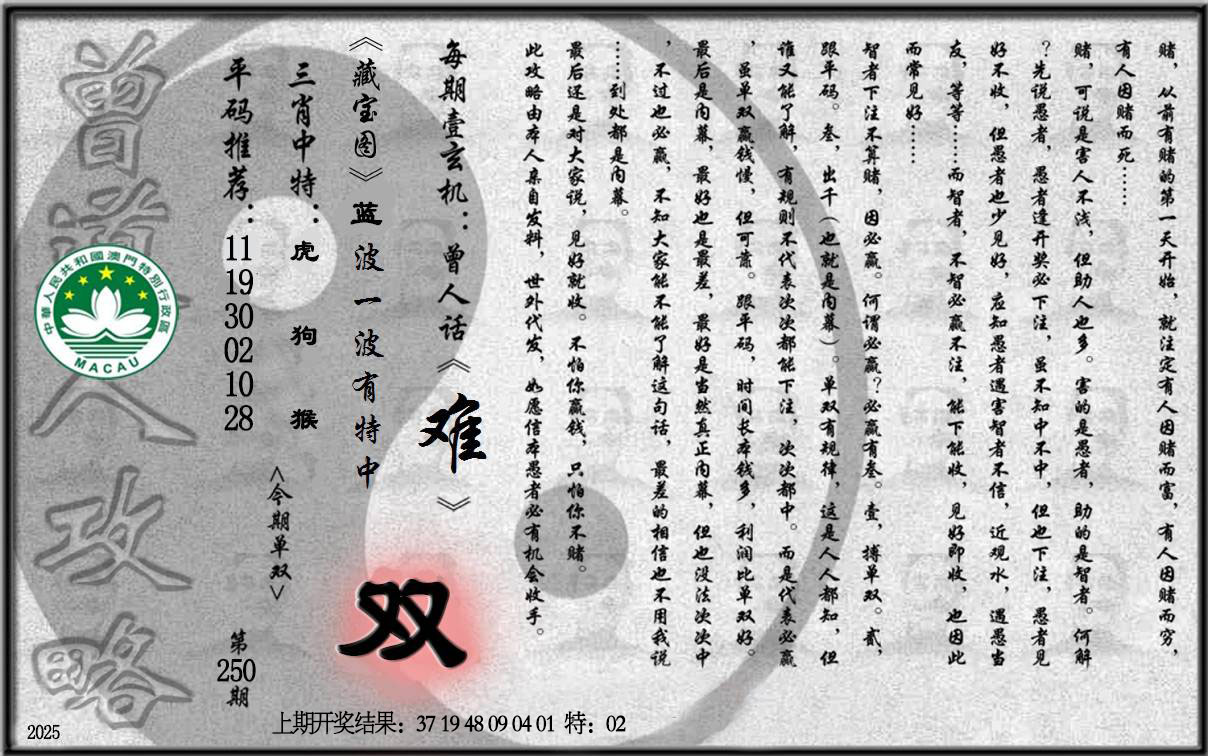 赌，从前有赌的第一天开始，就注定有人因赌而富，有人因赌而穷，
有人因赌而死……
赌，可说是害人不浅，但助人也多。害的是愚者，助的是智者。何解
？先说愚者，愚者逢开奖必下注，虽不知中不中，但也下注，愚者见
好不收，但愚者也少见好，应知愚者遇害智者不信，近观水，遇愚当
友，等等……而智者，不智必赢不注，能下能收，见好即收，也因此
而常见好……
智者下注不算赌，因必赢。何谓必赢？必赢有叁。壹，搏单双。贰，
跟平码。叁，出千（也就是内幕）。单双有规律，这是人人都知，但
谁又能了解，有规则不代表次次都能下注，次次都中。而是代表必赢
，虽单双赢钱慢，但可靠。跟平码，时间长本钱多，利润比单双好。
最后是内幕，最好也是最差，最好是当然真正内幕，但也没法次次中
，不过也必赢，不知大家能不能了解这句话，最差的相信也不用我说
……到处都是内幕。
最后还是对大家说，见好就收。不怕你赢钱，只怕你不赌。
此攻略由本人亲自发料，世外代发，如愿信本愚者必有机会收手。
每期壹玄机：曾人话《难》
《藏宝图》蓝波一波有特中
双
三肖中特：虎 狗 猴
<今期单双>
平码推荐：11 19 30 02 10 28
第250期
曾道人攻略
中華人民共和國澳門特別行政區
MACAU
上期开奖结果：37 19 48 09 04 01 特：02
2025